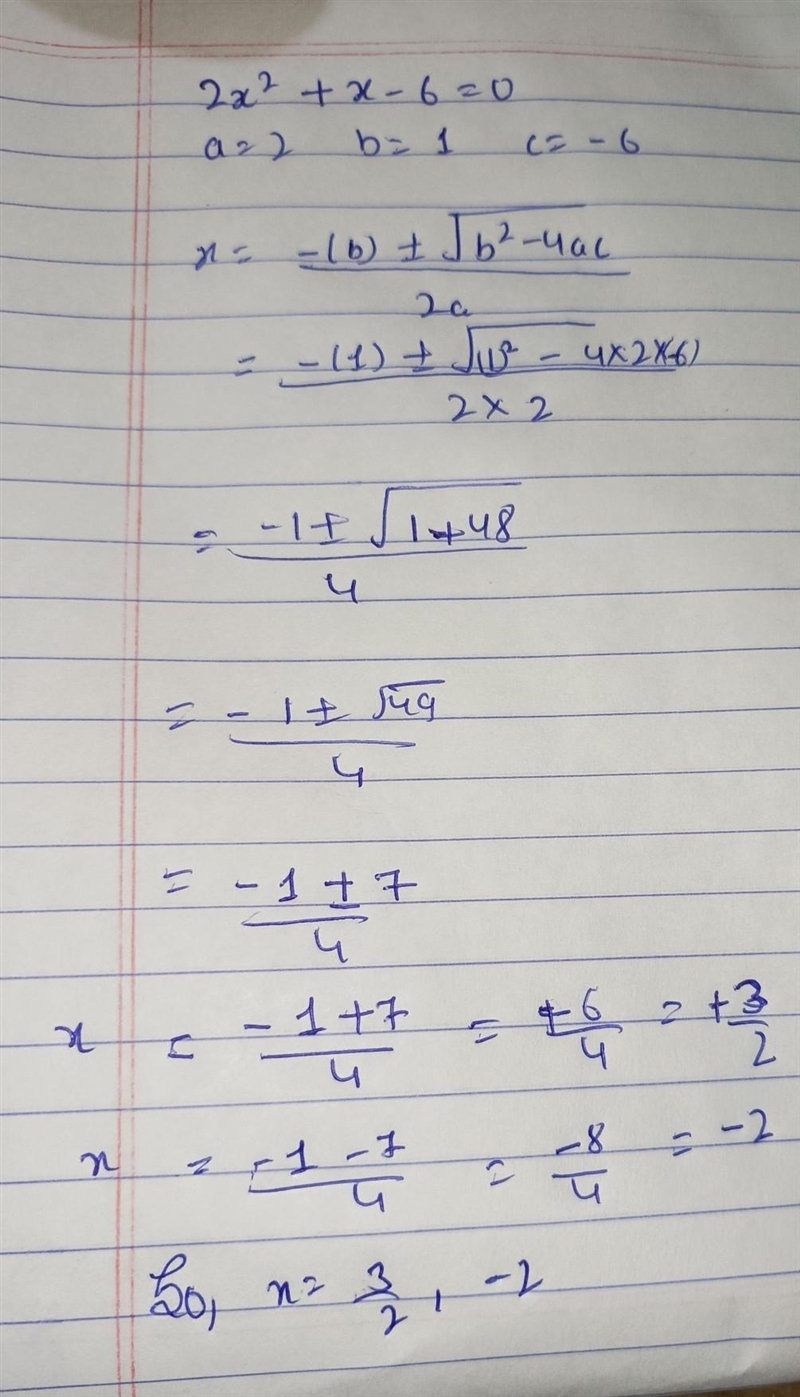 2x² + x - 6 = 0
a = 2 b = 1 c = - 6
x = -(b) ± √b² - 4ac
2a
= -(1) ± √(1)² - 4×2×(-6)
2 × 2
= -1 ± √1+48
4
= -1 ± √49
4
= -1 ± 7
4
x = -1+7 = +6 = +3
4 4 2
x = -1 -7 = -8 = -2
4 4
So, x = 3/2, -2